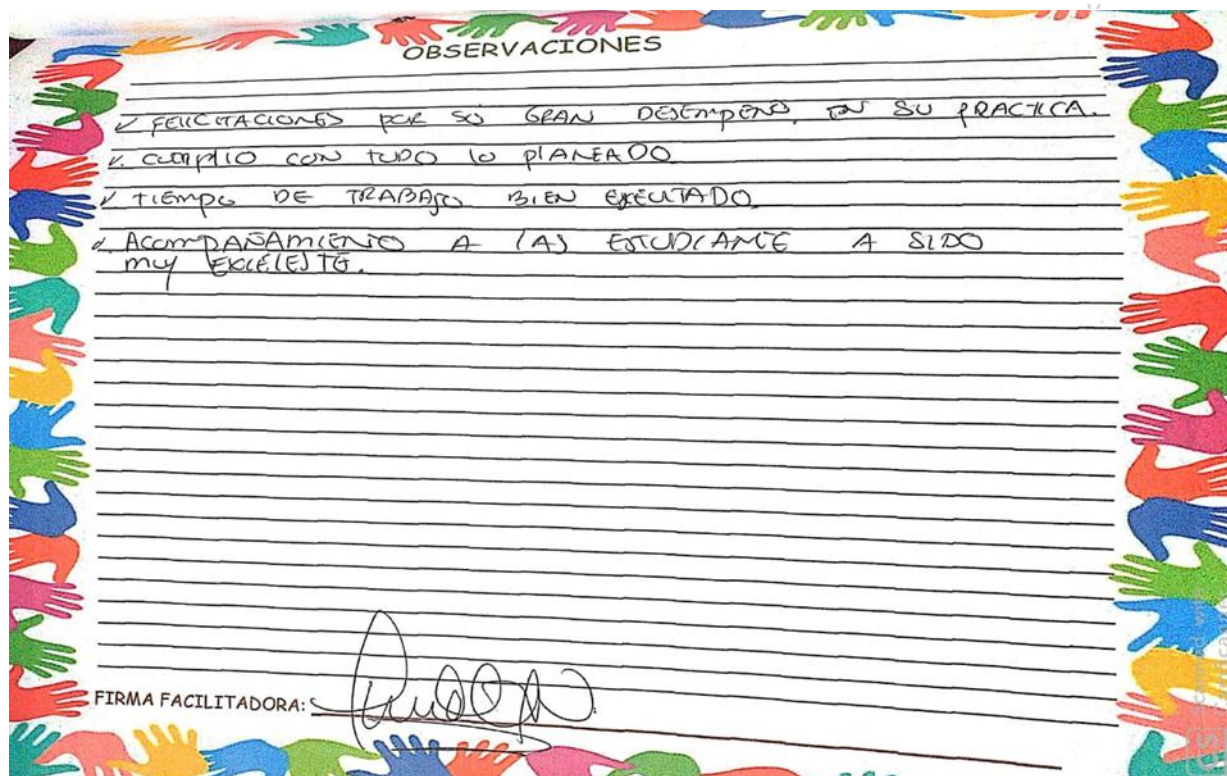 OBSERVACIONES
✓ FELICITACIONES POR SU GRAN DESEMPEÑO, EN SU PRACTICA.
✓ CUMPLIO CON TODO lo PlANEADO
✓ TIEMPO DE TRABAJO BIEN EJECUTADO.
✓ ACOMPAÑAMIENTO A LAS ESTUDIANTE A SIDO
muy EXCELESTE.
FIRMA FACILITADORA:
CS